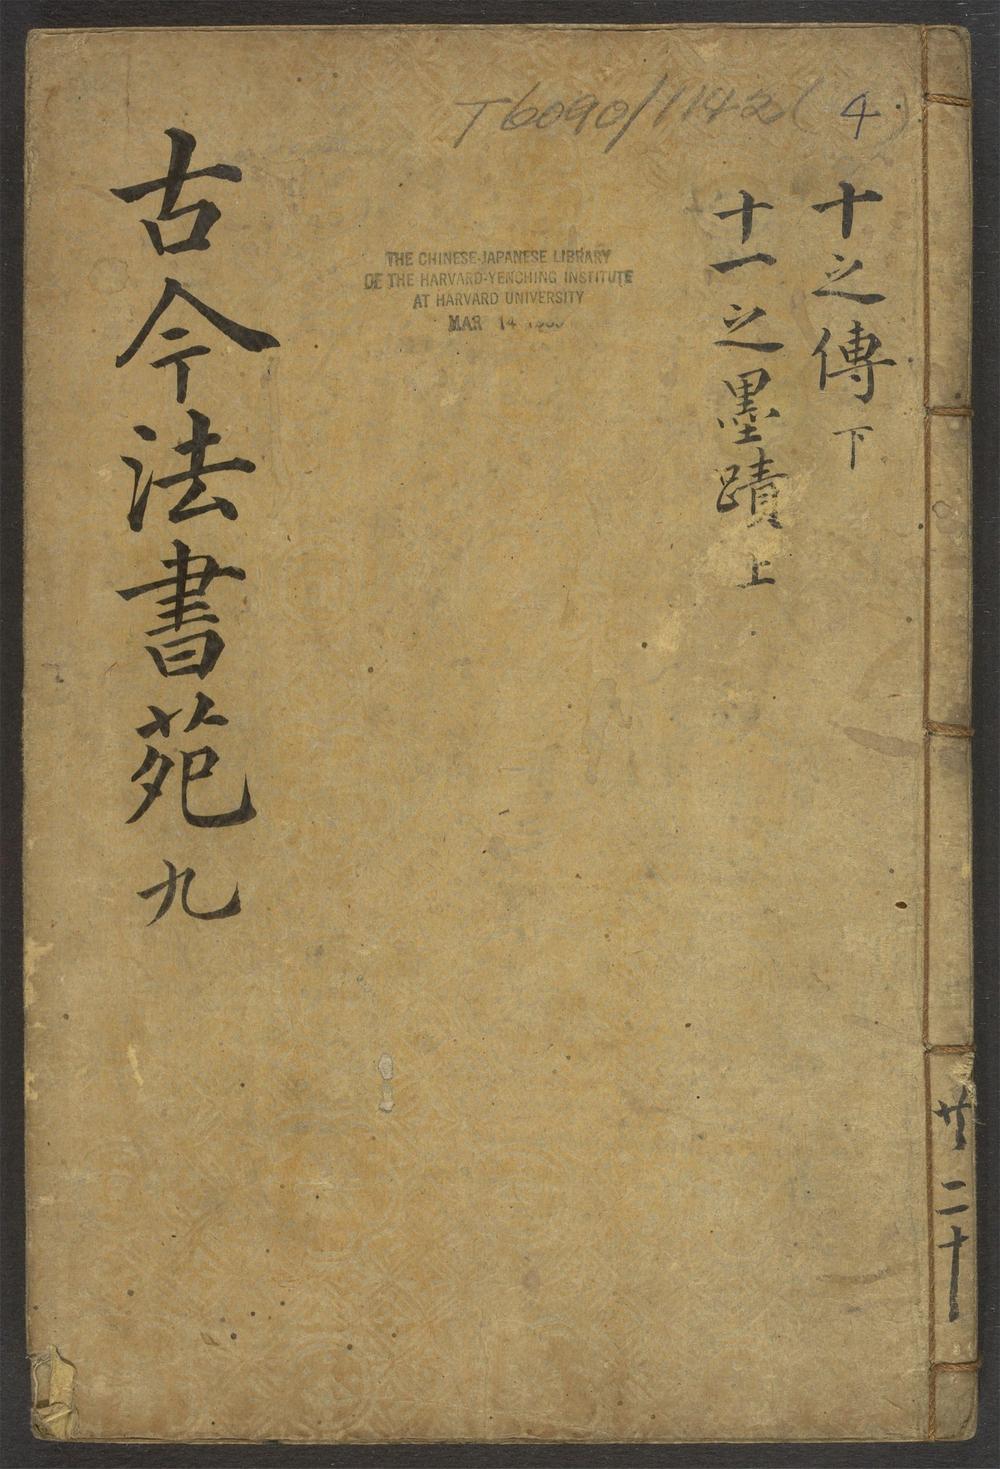 T6090/1142(4)
十之傳下
十一之墨蹟上
THE CHINESE-JAPANESE LIBRARY
OF THE HARVARD-YENCHING INSTITUTE
AT HARVARD UNIVERSITY
MAR 14
古今法書苑 九